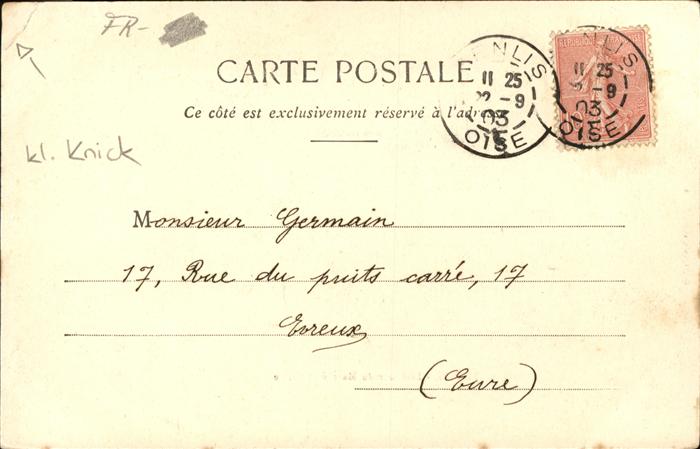 FR-
CARTE POSTALE
Ce côté est exclusivement réservé à l'adresse
SENLIS
11 25
-9
03
OISE
ENLIS
11 25
-9
03
OISE
RÉPUBLIQUE
kl. Knick
Monsieur Germain
17, Rue du puits carré, 17
Evreux
(Eure)